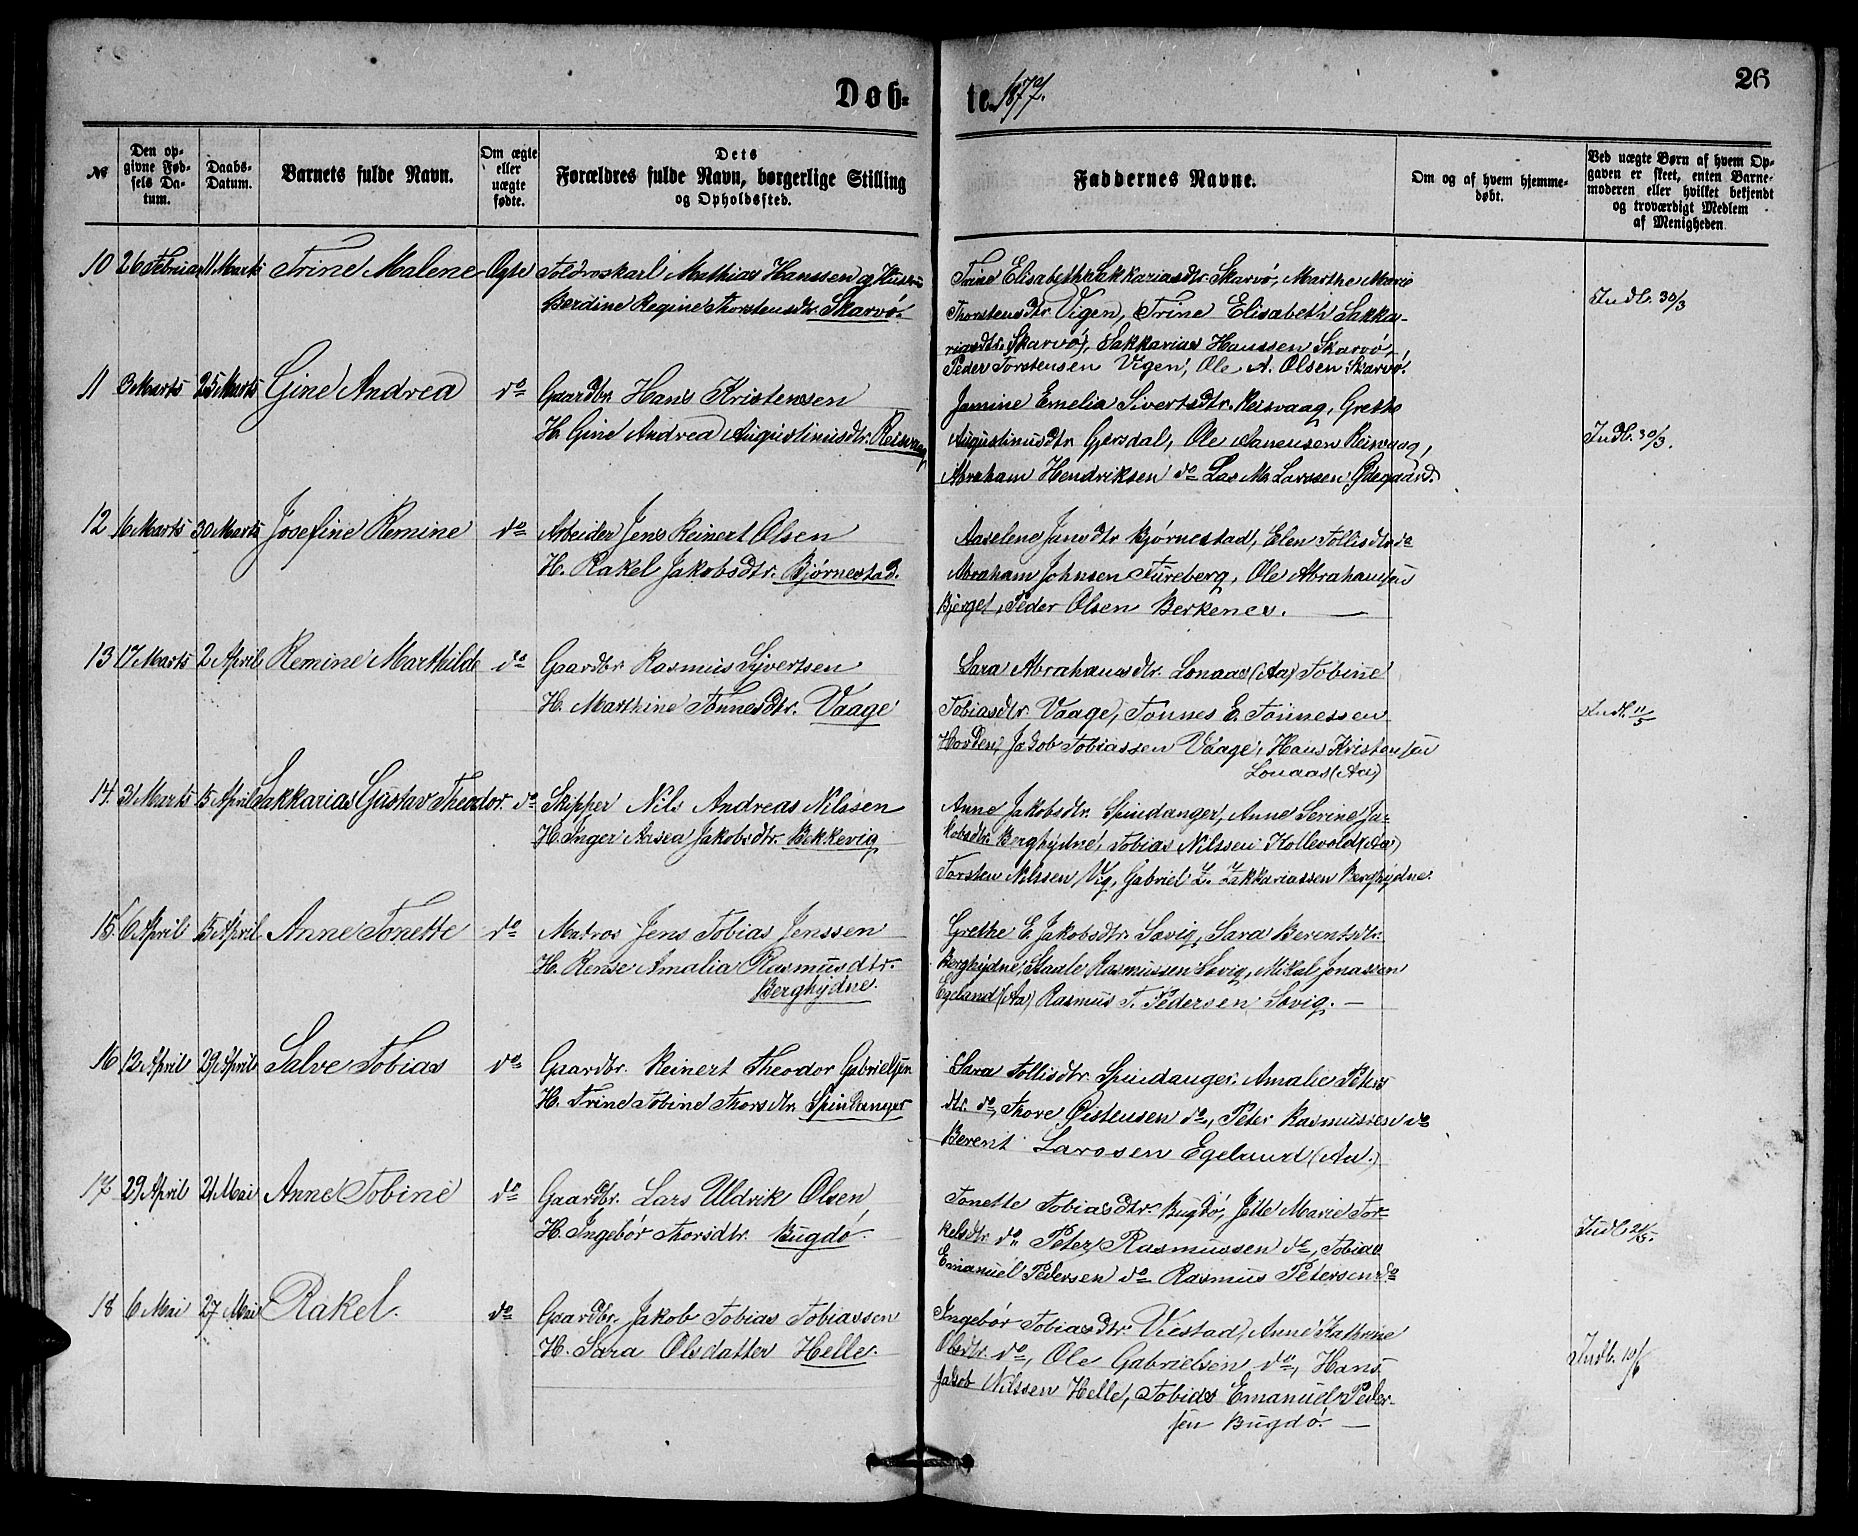 Døb-
te 1877.
26
№
Den op-
givne Fød-
sels Da-
tum.
Daabs-
Datum.
Barnets fulde Navn.
Om ægte
eller
uægte
fødte.
Dets
Forældres fulde Navn, borgerlige Stilling
og Opholdssted.
Faddernes Navne.
Om og af hvem hjemme-
døbt.
Ved uægte Børn af hvem Op-
gaven er skeet, enten Barne-
moderen eller hvilket bekjendt
og troværdigt Medlem
af Menigheden.
10 26 Februar 11 Marts Trine Malene Ægte Toldroskarl Mathias Hanssen og Hustru
Berdine Regine Thorstensdtr. Skarvö.
Trine Elisabeth Sakkariasdtr. Skarvö, Marthe Marie
Thorstensdtr. Vigen, Trine Elisabeth Sakka-
riasdtr. Skarvö, Sakkarias Hanssen Skarvö,
Peder Torstensen Vigen, Ole A. Olsen Skarvö.
Indb. 30/3
11 3 Marts 25 Marts Gine Andrea do Gaardbr. Hans Kristensen
H. Gine Andrea Augustinusdtr. Reisvaag
Jamine Emelia Sivertsdtr. Reisvaag, Grethe
Augustinusdtr. Gjersdal, Ole Hanensen Reisvaag,
Abraham Hendriksen do Las M. Larssen Ødegaard.
Indb. 30/3.
12 16 Marts 30 Marts Josefine Remine do Arbeider Jens Reinert Olsen
H. Rakel Jakobsdtr. Bjørnestad.
Aaselene Jansdtr. Bjørnestad, Elen Tollisdtr. do
Abraham Johnsen Tureberg, Ole Abrahamsen
Bjerget, Peder Olsen Berkenes.
13 17 Marts 2 April Remine Marthilde do Gaardbr. Rasmus Sjvertsen
H. Marthine Tönnesdtr. Vaage
Sara Abrahamsdtr. Lonaas (Aa) Tobine
Tobiasdtr. Vaage, Tonnes E. Tönnessen
Hovden, Jakob Tobiassen Vaage, Hans Kristensen
Lonaas (Aa)
Indb. 11/5
14. 31 Marts 15 April Sakkarias Gustav Theodor. do Skipper Nils Andreas Nilssen
H. Inger Aasea Jakobsdtr. Bekkevig
Anne Jakobsdtr. Spindanger, Anne Serine Ja-
kobsdtr. Berghydne, Tobias Nilssen Kollevold (Aa)
Torsten Nilssen Vig, Gabriel Z. Zakkariassen Berghydne.
15. 6 April 15 April Anne Tonette do Matros Jens Tobias Jenssen
H. Rense Amalia Rasmusdtr.
Berghydne.
Grethe E. Jakobsdtr. Savig, Sara Berentsdtr.
Berghydne, Staale Rasmussen Savig, Mikal Jonassen
Egeland (Aa) Rasmus T. Pedersen Savig.
16 12 April 29 April Salve Tobias do Gaardbr. Reinert Theodor Gabrielsen
H. Trine Tobine Thorsdtr. Spindanger
Sara Tollisdtr. Spindanger, Amalie Peters
dtr. do, Thore Øistensen do, Peter Rasmussen do
Berent Larssen Egeland (Aa.)
17 29 April 21 Mai Anne Tobine do Gaardbr. Lars Uldrik Olsen
H. Ingebör Thorsdtr. Bugdö.
Tonette Tobiasdtr. Bugdö, Jette Marie Tor-
kelsdtr. do Peter Rasmussen do, Tobias
Emanuel Pedersen do Rasmus Petersen do
Indb. 21/5.
18 6 Mai 27 Mai Rakel. do Gaardbr. Jakob Tobias Tobiassen
H. Sara Olsdatter Helle.
Ingebör Tobiasdtr. Viestad, Anne Kathrine
Olsdtr. do, Ole Gabrielsen do, Hans
Jakob Nilssen Helle, Tobias Emanuel Peder-
sen Bugdö.
Indb. 10/6